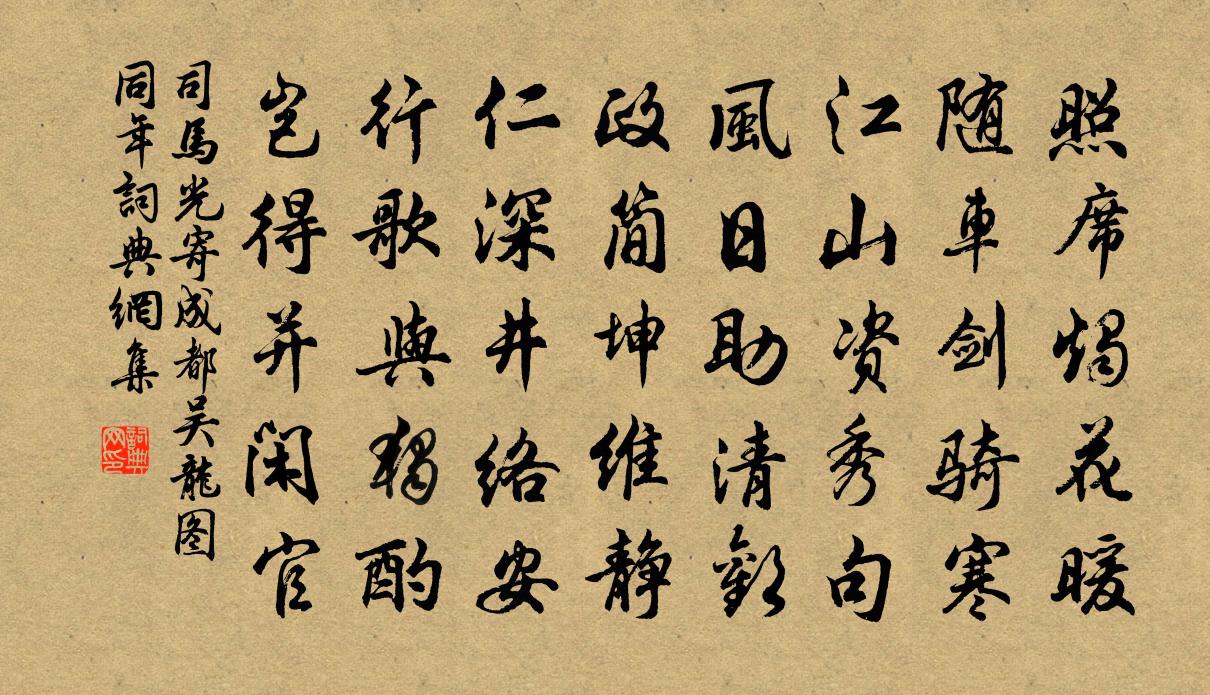 照席燭花暖
随車剑騎寒
江山資秀句
風日助清歡
政简坤維静
仁深井絡安
行歌與獨酌
岂得并闲官
司馬光寄成都吴龍图
同年詞典網集
詞典网印